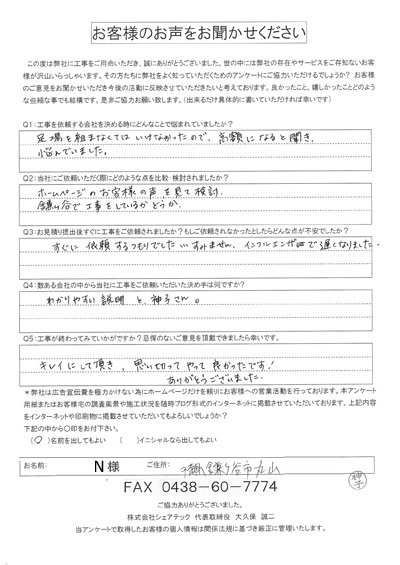 お客様のお声をお聞かせください
この度は弊社に工事をご用命いただき、誠にありがとうございます。世の中には弊社の存在やサービスをご存知ないお客
様が沢山いらっしゃいます。その方たちに弊社をよく知っていただくためのアンケートにご協力いただけるでしょうか? お客様
のご意見をお聞かせいただき今後の活動に反映させていただきたいと考えております。良かったこと、嬉しかったことどのよう
な些細な事でも結構です。是非ご協力お願い致します。(出来るだけ具体的に書いていただければ幸いです)
Q1:工事を依頼する会社を決める時にどんなことで悩まれていましたか?
足場を組まなくてはいけなかったので、高額になると聞き、
悩んでいました。
Q2:当社にご依頼いただく際にどのような点を比較・検討されましたか?
ホームページのお客様の声を見て検討。
鎌ヶ谷で工事をしているかどうか。
Q3:お見積り提出後すぐに工事をご依頼されましたか?もしご依頼されなかったとしたらどんな点が不安でしたか?
すぐに依頼するつもりでしたいすみません、インフルエンザで遅くなりました。
Q4:数ある会社の中から当社に工事をご依頼いただいた決め手は何ですか?
わかりやすい説明と、神子さん。
Q5:工事が終わってみていかがですか?忌憚のないご意見を頂戴できましたら幸いです。
キレイにして頂き、思い切ってやって良かったです!
ありがとうございました。
*弊社は広告宣伝費を極力かけない為にホームページだけを頼りにお客様への営業活動を行っております。本アンケート
用紙またはお客様宅の調査風景や施工状況を随時ブログ形式のインターネットに掲載させていただいております。上記内容
をインターネットや印刷物に掲載させていただいてもよろしいでしょうか?
下記の中から〇印をお付け下さい。
(〇)名前を出してもよい ( )イニシャルなら出してもよい
お名前: N 様 ご住所: 鎌ヶ谷市丸山
FAX 0438-60-7774
神子
ご協力ありがとうございました。
株式会社シェアテック 代表取締役 大久保 誠二
当アンケートで取得したお客様の個人情報は関係法規に基づき厳正に管理いたします。